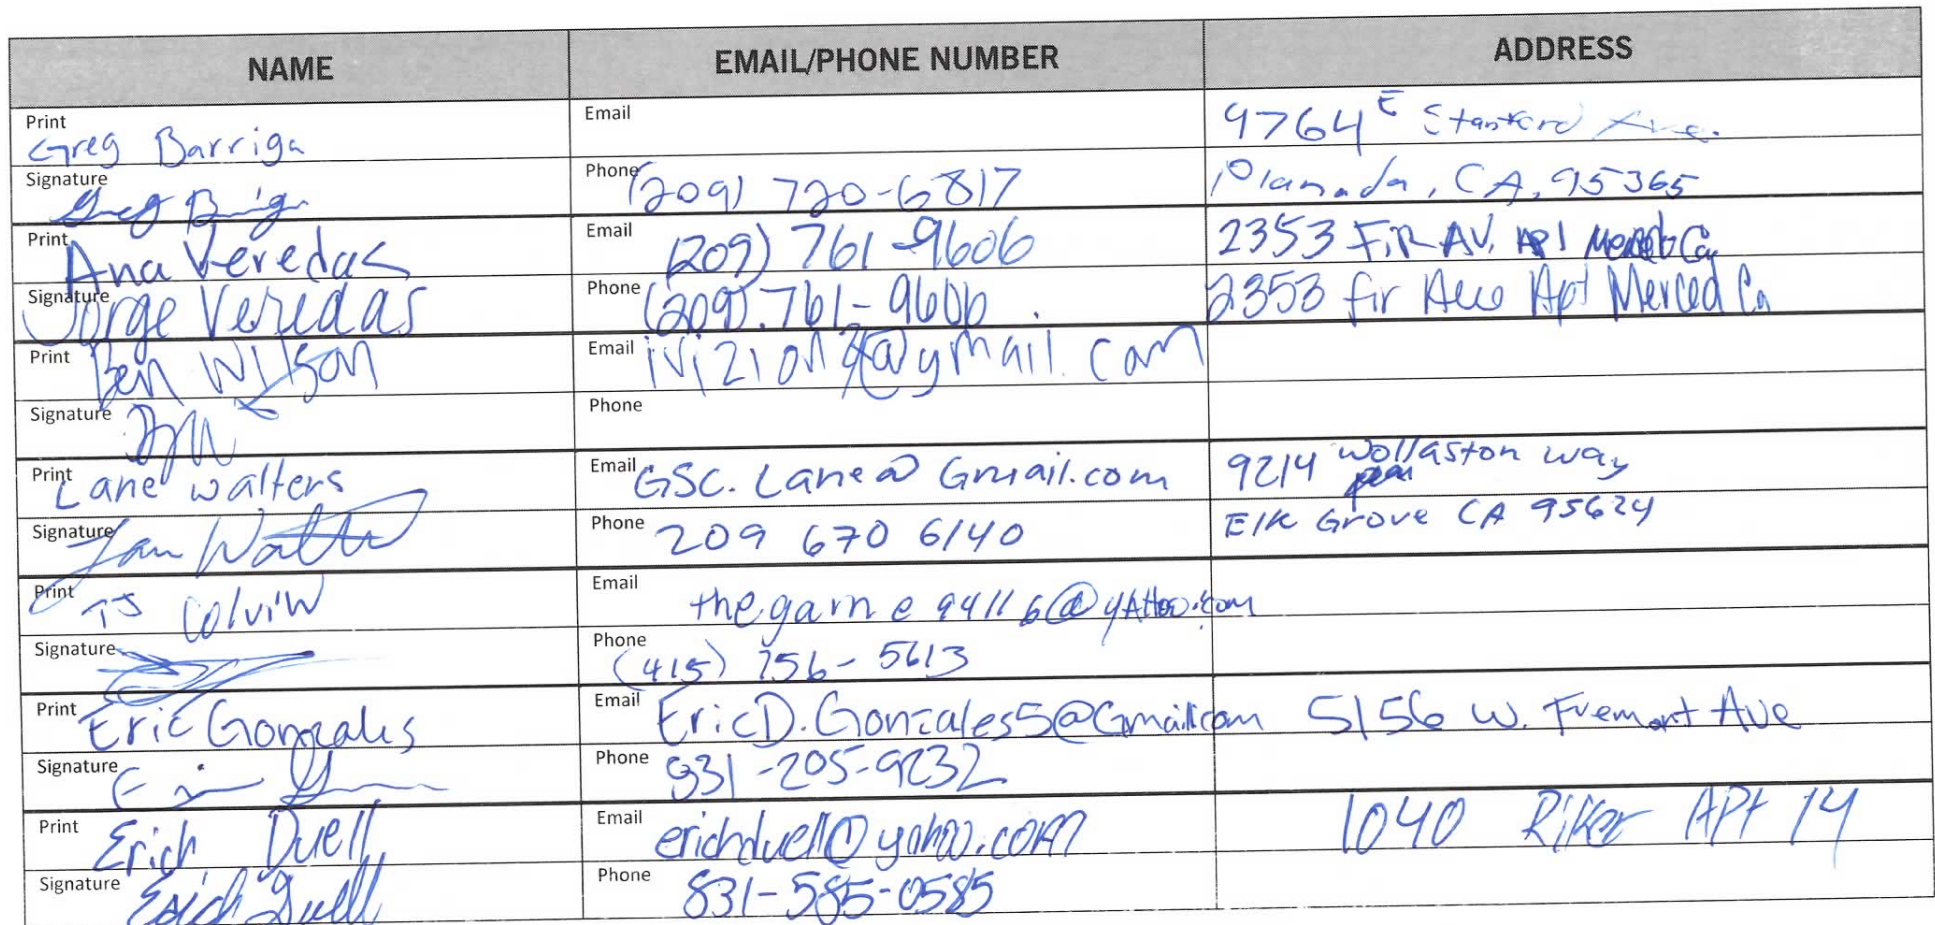 NAME EMAIL/PHONE NUMBER ADDRESS
Print Greg Barriga Email 9764 E Stanford Ave.
Signature Greg Barriga Phone (209) 720-6817 Planada, CA, 95365
Print Ana Veredas Email (209) 761-9606 2353 FiR AV. Ap1 Merced Ca
Signature Jorge Veredas Phone (209) 761-9606. 2353 fir Ave Apt Merced Ca
Print Ben Wilson Email @ymail.com
Signature Phone
Print Lane walters Email GSC.Lane@Gmail.com 9214 wollaston way
Signature Lan Walters Phone 209 670 6140 Elk Grove CA 95624
Print TJ ColviN Email thegame94116@yAHoo.com
Signature Phone (415) 756-5613
Print Eric Gonzales Email EricD.Gonzales5@Gmail.com 5156 W. Fremont Ave
Signature Phone 831-205-9232
Print Erich Duell Email erichduell@yahoo.com 1040 Riker APt 14
Signature Erich Duell Phone 831-585-0585